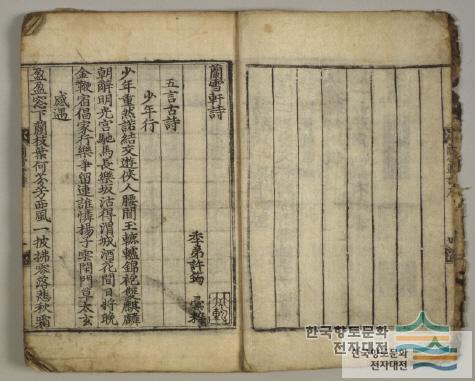 蘭雪軒詩
季弟許筠 彙粹
五言古詩
少年行
少年重然諾結交遊俠人腰間玉轆轤錦袍雙麒麟
朝辭明光宮馳馬長樂坂沽得渭城酒花間日將晚
金鞭宿倡家行樂爭留連誰憐揚子雲閉門草太玄
感遇
盈盈窓下蘭枝葉何芬芳西風一披拂零落悲秋霜
한국향토문화
전자대전
한국향토문화
전자대전